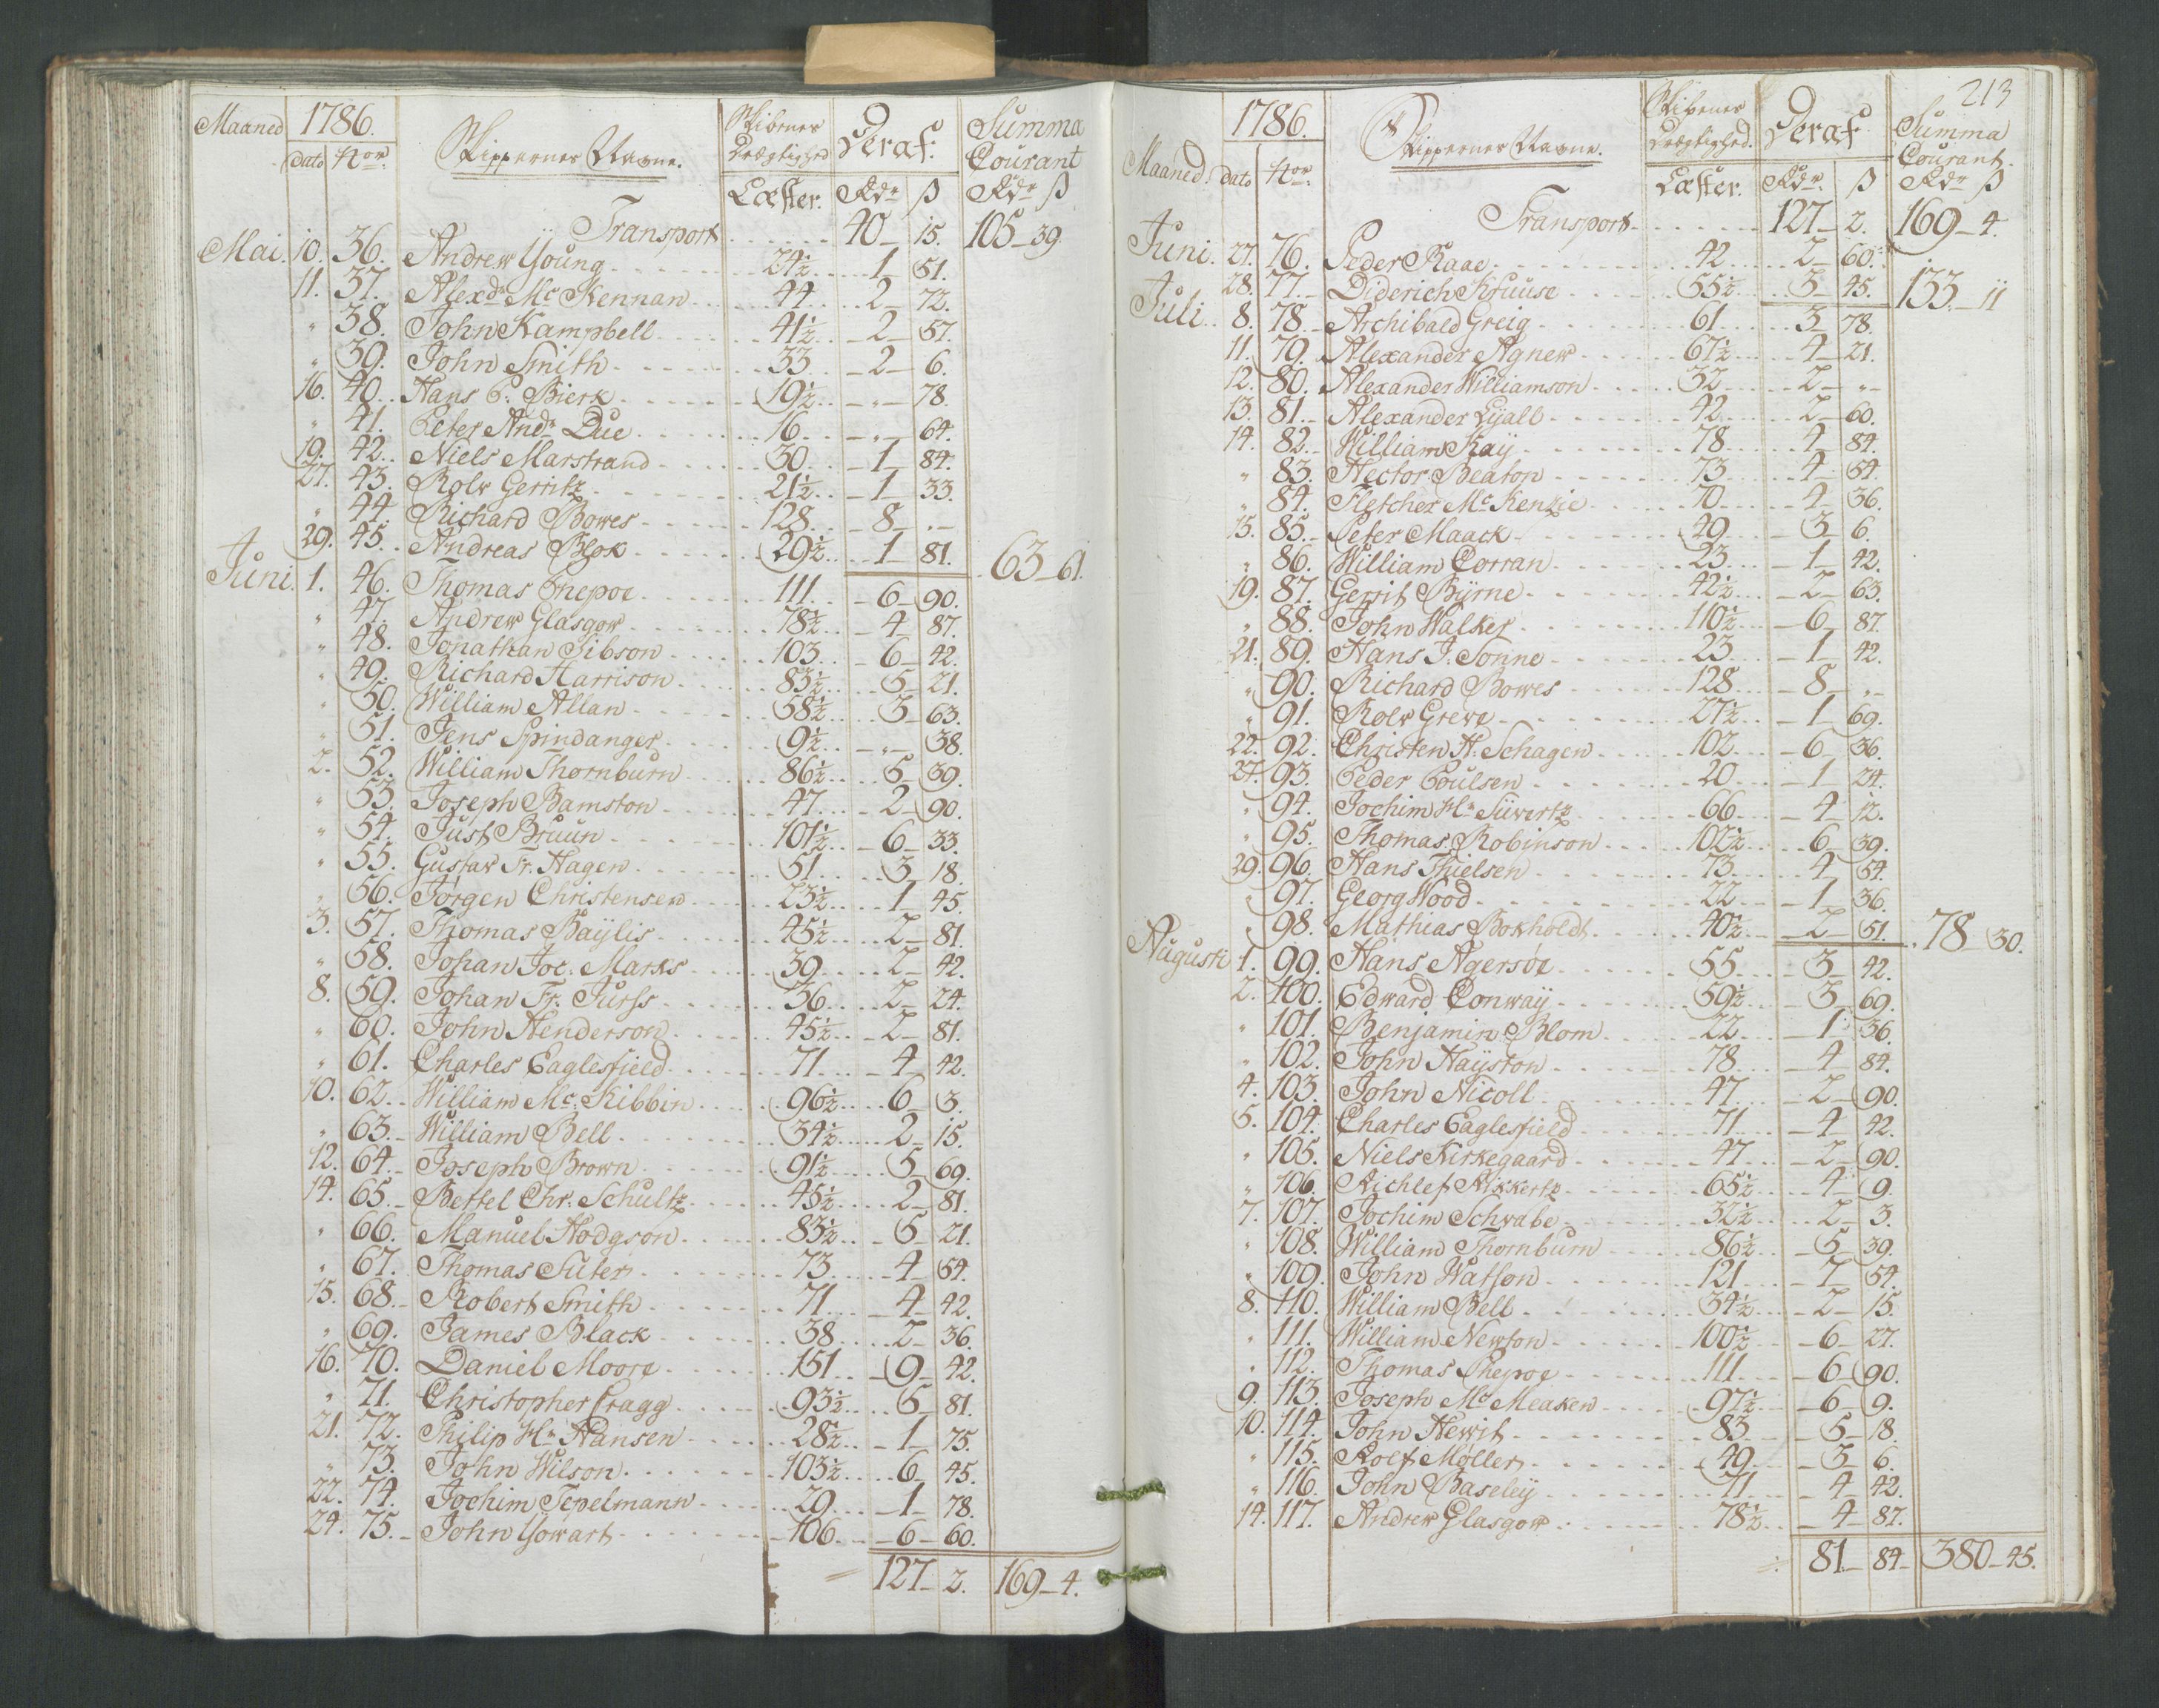 Maaned 1786. Skippernes Navne. Skibenes Drægtighed Deraf. Summa Courant
dato Nor. Læster. Rdr ß Rdr ß
Transport 40 15. 105 39.
Mai. 10. 36. Andrew Young 24½ 1 51.
11. 37. Alexdr Mc Kennan 44 2 72.
" 38. John Kampbell 41½ 2 57.
" 39. John Smith 33 2 6.
16. 40. Hans P. Bierk 19½ " 78.
" 41. Peter Andr Due 16 " 64.
19. 42. Niels Marstrand 30 1 84.
27. 43. Rolv Gerritz 21½ 1 33.
" 44. Richard Bowes 128 8 "
29. 45. Andreas Blok 29½ 1 81. 63 61.
Juni. 1. 46. Thomas Chepoe 111 6 90.
" 47. Andrew Glasgow 78½ 4 87.
" 48. Jonathan Sibson 103 6 42.
" 49. Richard Harrison 83½ 5 21.
" 50. William Allan 58½ 3 63.
" 51. Jens Spindanger 9½ " 38.
2. 52. William Thornburn 86½ 5 39.
" 53. Joseph Bamston 47 2 90.
" 54. Just Bruun 101½ 6 33.
" 55. Gustav Fr. Hagen 51 3 18.
" 56. Jørgen Christensen 23½ 1 45.
3. 57. Thomas Baylis 45½ 2 81.
" 58. Johan Joc. Marks 39 2 42.
8. 59. Johan Fr. Jurss 36 2 24.
" 60. John Henderson 45½ 2 81.
" 61. Charles Eaglesfield 71 4 42.
10. 62. William Mc Kibbin 96½ 6 3.
" 63. William Bell 34½ 2 15.
12. 64. Joseph Brown 91½ 5 69.
14. 65. Bettel Chr. Schultz 45½ 2 81.
" 66. Manuel Hodgson 83½ 5 21.
" 67. Thomas Suter 73 4 54.
15. 68. Robert Smith 71 4 42.
" 69. James Black 38 2 36.
16. 70. Daniel Moore 151 9 42.
" 71. Christopher Cragg 93½ 5 81.
21. 72. Philip Hn Hansen 28½ 1 75.
" 73. John Wilson 103½ 6 45.
22. 74. Jochim Tepelmann 29 1 78.
24. 75. John Yowart 106 6 60.
127 2. 169 4.
213
Maaned. 1786. Skippernes Navne. Skibenes Drægtighed. Deraf Summa Courant.
dato Nor. Læster. Rdr. ß Rdr ß
Transport 127 2. 169 4.
Juni. 27. 76. Peder Raae 42 2 60.
28. 77. Diderich Kruuse 55½ 3 45. 133 11
Juli. 8. 78. Archibald Greig 61 3 78.
11. 79. Alexander Agnew 67½ 4 21.
12. 80. Alexander Williamson 32 2 "
13. 81. Alexander Lyall 42 2 60.
14. 82. William Kay 78 4 84.
" 83. Hector Beaton 73 4 54.
" 84. Fletcher Mc Kenzie 70 4 36.
15. 85. Peter Maack 49 3 6.
" 86. William Corran 23 1 42.
19. 87. Gerrit Byrne 42½ 2 63.
" 88. John Walker 110½ 6 87.
21. 89. Hans J. Sonne 23 1 42.
" 90. Richard Bowes 128 8 "
" 91. Rolv Greve 27½ 1 69.
22. 92. Christen H. Schagen 102 6 36.
27. 93. Peder Poulsen 20 1 24.
" 94. Jochim Hn Siivertz 66 4 12.
" 95. Thomas Robinson 102½ 6 39.
29. 96. Hans Thielsen 73 4 54.
" 97. Georg Wood 22 1 36.
" 98. Mathias Bokholdt 40½ 2 51. 78 30.
Augusti 1. 99. Hans Agersøe 55 3 42.
2. 100. Edward Conway 59½ 3 69.
" 101. Benjamin Blom 22 1 36.
" 102. John Hayston 78 4 84.
4. 103. John Nicoll 47 2 90.
5. 104. Charles Eaglesfield 71 4 42.
" 105. Niels Kirkegaard 47 2 90.
" 106. Richlef Rikkertz 65½ 4 9.
7. 107. Jochim Schwabe 32½ 2 3.
" 108. William Thornburn 86½ 5 39.
" 109. John Watson 121 7 54.
8. 110. William Bell 34½ 2 15.
" 111. William Newton 100½ 6 27.
" 112. Thomas Chepoe 111 6 90.
9. 113. Joseph Mc Meaken 97½ 6 9.
10. 114. John Hewit 83 5 18.
" 115. Rolf Møller 49 3 6.
" 116. John Baseley 71 4 42.
14. 117. Andrew Glasgow 78½ 4 87.
81 84 380 45.